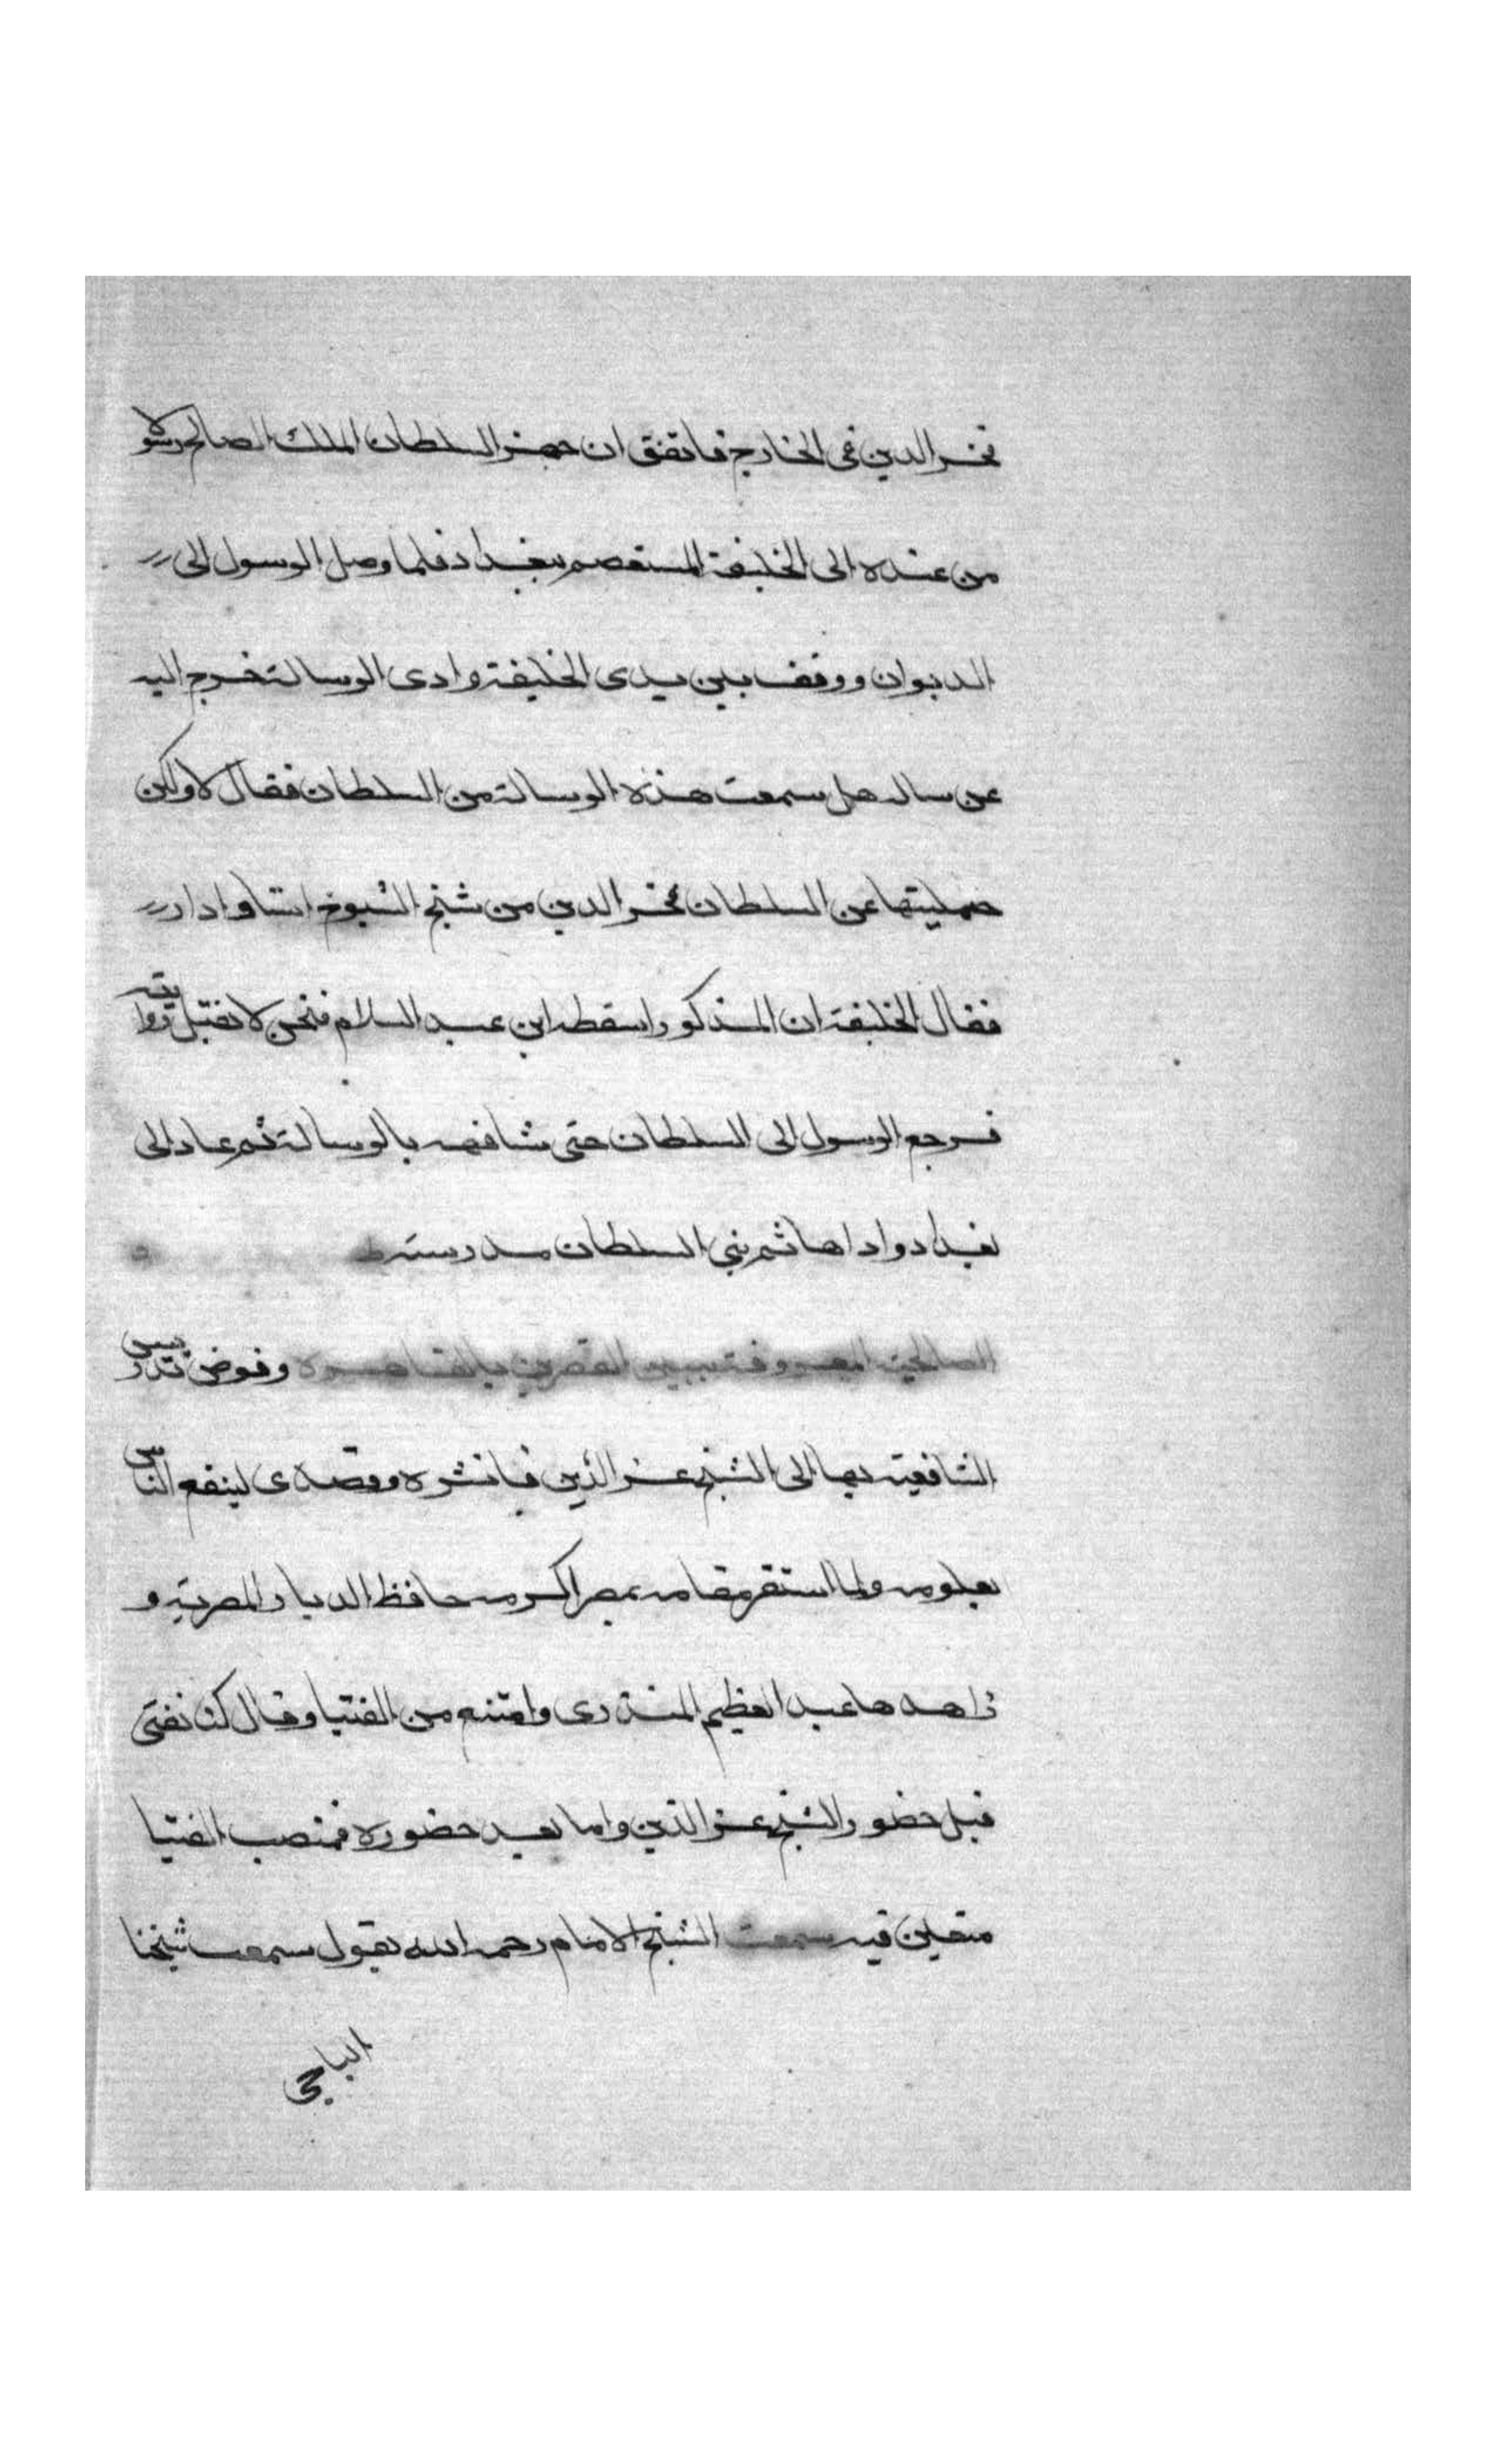 فخر الدين في الخارج فاتفق ان جهز السلطان الملك الصالح رسولا
من عنده الى الخليفة المستعصم ببغداد فلما وصل الرسول الى
الديوان ووقف بين يدى الخليفة وادى الرسالة خرج اليه
من ساله هل سمعت هذه الرسالة من السلطان فقال لا ولكن
حمليتها عن السلطان فخر الدين من شيخ الشيوخ استاد ادار
فقال الخليفة ان المذكور اسقطه ابن عبد السلام فنحن لا نقبل روايته
فرجع الرسول الى السلطان حتى شافهه بالرسالة ثم عاد الى
بغداد واداها ثم بني السلطان مدرسته
الصالحية المعروفة ببين القصرين بالقاهرة وفوض تدريس
الشافعية بها الى الشيخ عز الدين فباشره وتصدى لينفع الناس
بعلومه ولما استقر مقامه بمصر اكرمه حافظ الديار المصرية و
زاهدها عبد العظيم المنذرى وامتنع من الفتيا وقال كنا نفتى
قبل حضور الشيخ عز الدين واما بعد حضوره فمنصب الفتيا
متعين فيه سمعت الشيخ الامام رحمه الله يقول سمعت شيخنا
الباجي